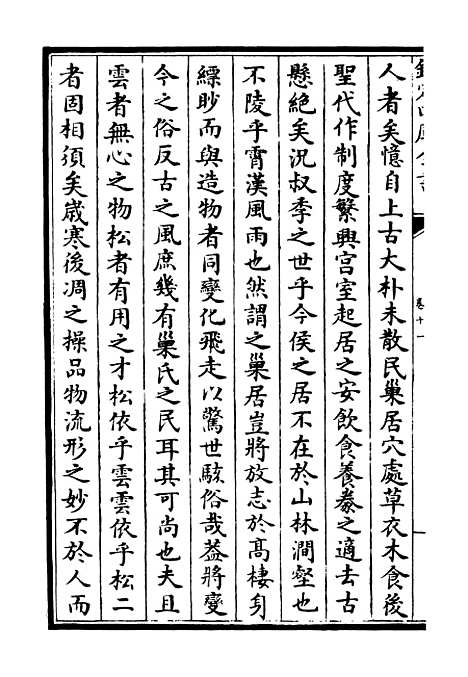 人者矣憶自上古大朴未散民巢居穴處草衣木食後
聖代作制度繁興宫室起居之安飲食養豢之適去古
懸絶矣況叔季之世乎今侯之居不在於山林澗壑也
不陵乎霄漢風雨也然謂之巢居豈將放志於髙棲身
縹眇而與造物者同變化飛走以驚世駭俗哉葢將變
今之俗反古之風庶幾有巢氏之民耳其可尚也夫且
雲者無心之物松者有用之才松依乎雲雲依乎松二
者固相須矣嵗寒後凋之操品物流形之妙不於人而
卷十一